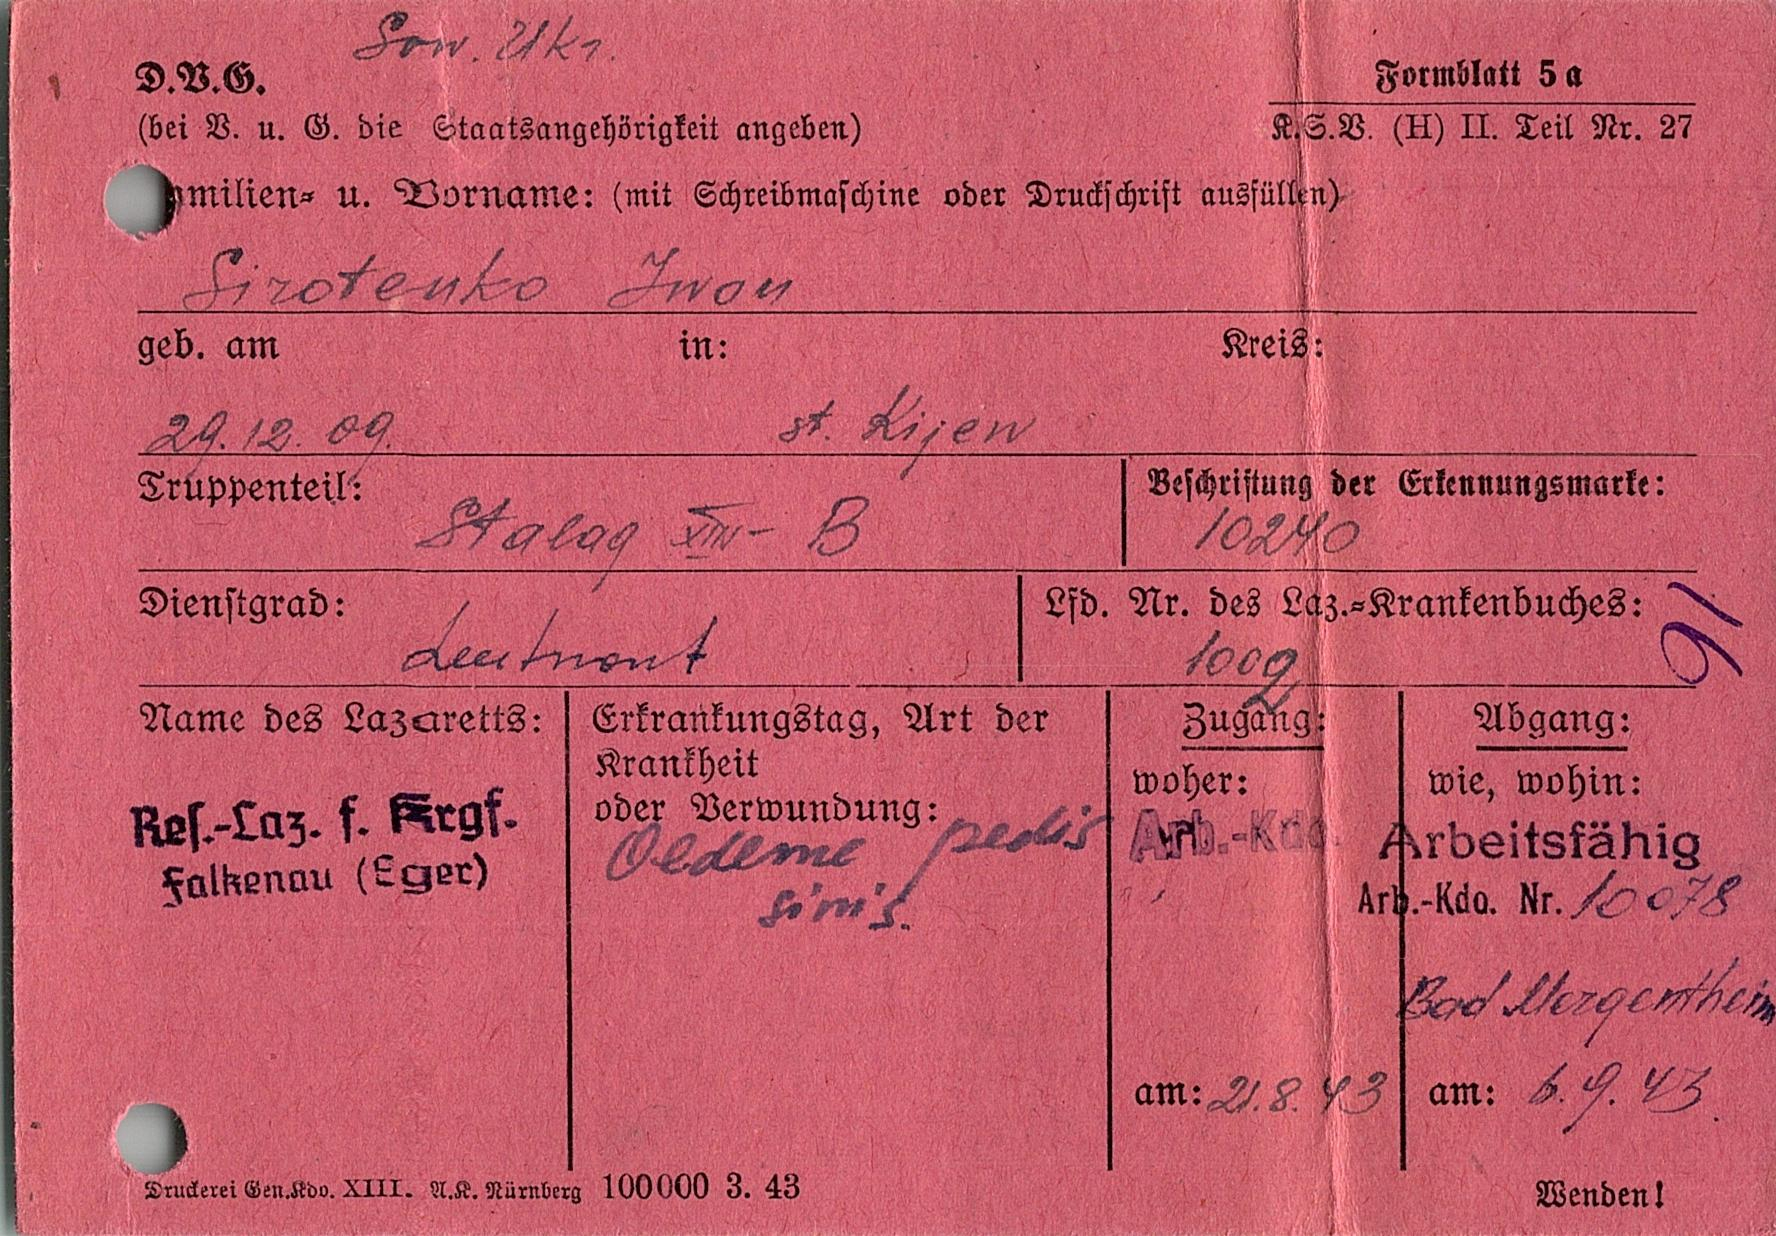 Sow. Ukr.
D.V.G.
Formblatt 5a
(bei V. u. G. die Staatsangehörigkeit angeben)
K.S.V. (H) II. Teil Nr. 27
amilien- u. Vorname: (mit Schreibmaschine oder Druckschrift ausfüllen)
Sirotenko Iwan
geb. am in: Kreis:
29.12.09. st. Kijew
Truppenteil: Beschriftung der Erkennungsmarke:
Stalag XIII- B 10240
Dienstgrad: Lfd. Nr. des Laz.-Krankenbuches:
Leutnant 1009
91
Name des Lazaretts: Erkrankungstag, Art der Krankheit oder Verwundung: Zugang: Abgang:
woher: wie, wohin:
Res.-Laz. f. Krgf.
Falkenau (Eger)
Oedeme pedis
sinis.
Arb.-Kdo.
Arbeitsfähig
Arb.-Kdo. Nr. 10078
Bad Mergentheim
am: 21.8.43 am: 6.9.43.
Druckerei Gen.Kdo. XIII. A.K. Nürnberg 100000 3. 43
Wenden!